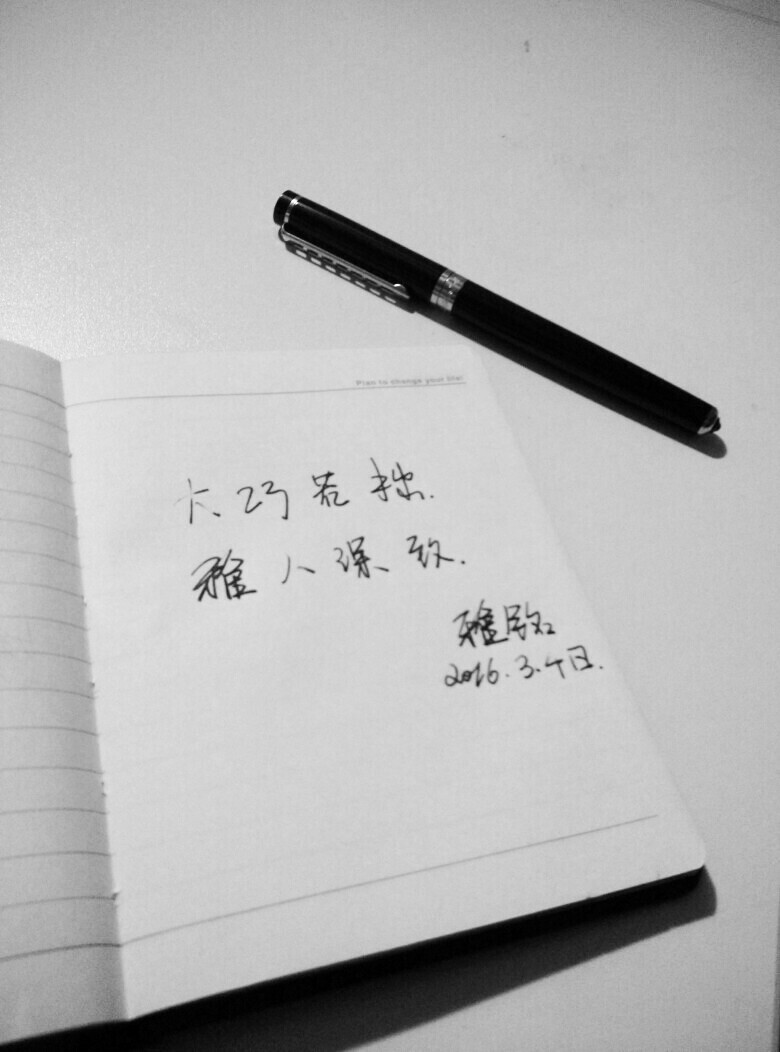 Plan to change your life!
大巧若拙.
雅人深致.
雅
2016.3.4日.